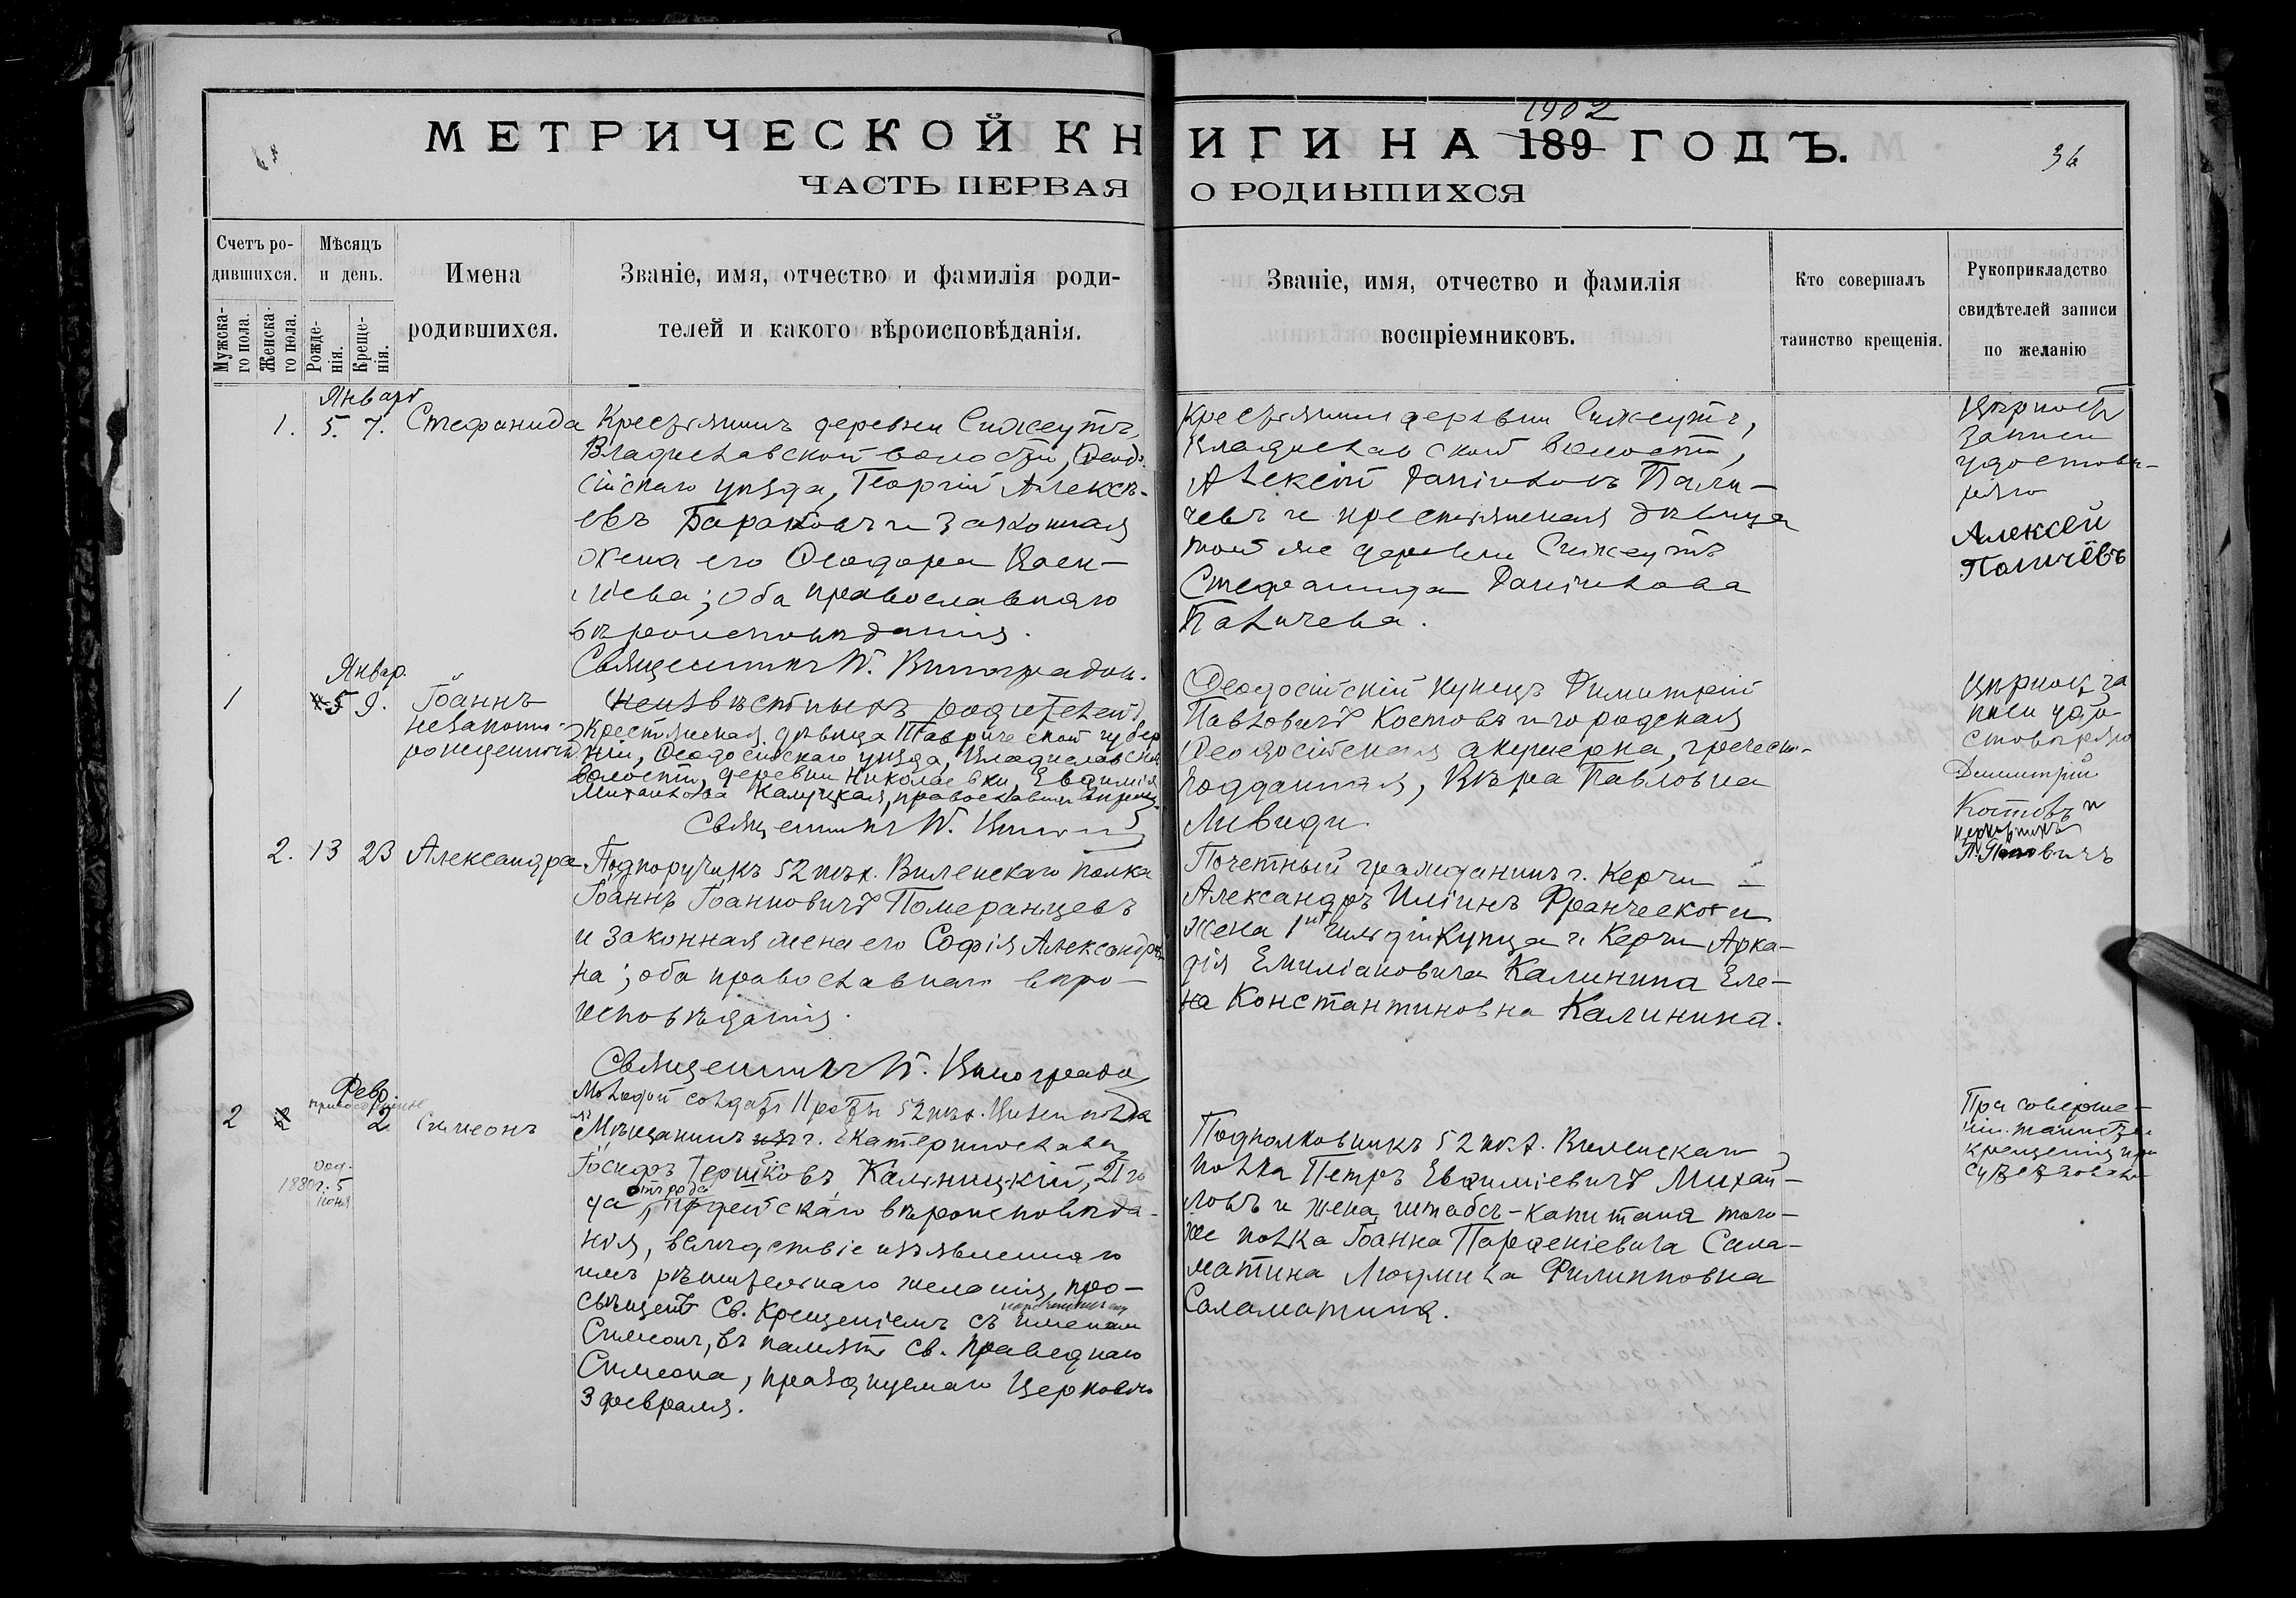 1902
МЕТРИЧЕСКОЙ КНИГИ НА 189 ГОДЪ.
36
ЧАСТЬ ПЕРВАЯ О РОДИВШИХСЯ
Счетъ родившихся.
Мѣсяцъ и день.
Имена родившихся.
Званіе, имя, отчество и фамилія родителей и какого вѣроисповѣданія.
Званіе, имя, отчество и фамилія воспріемниковъ.
Кто совершалъ таинство крещенія.
Рукоприкладство свидѣтелей записи по желанію
Мужскаго пола.
Женскаго пола.
Рожденія.
Крещенія.
Январь
1. 5. 7. Стефанида
Крестьянинъ деревни Сижеутъ,
Владиславской волости, Ѳеодо-
сійскаго уѣзда, Георгій Алексѣ-
евъ Бараковъ и законная
жена его Ѳеодора
оба православнаго
вѣроисповѣданія.
Священникъ П. Виноградовъ.
Крестьянинъ деревни Сижеутъ,
Владиславской волости,
Алексѣй Даніиловъ Пали-
чевъ и крестьянская дѣвица
той же деревни Сижеутъ
Стефанида Даніилова
Паличева.
Вѣрность
записи
удостовѣ-
ряю
Алексей
Поличевъ
Январ.
1 5 9. Іоаннъ
незаконно-
рожденный
Неизвѣстныхъ родителей
Крестьянская дѣвица Таврической губер
ніи, Ѳеодосійскаго уѣзда, Владиславской
волости, деревни Николаевки Евфимія
Михаилова Калуцкая, православн. вѣроисп.
Священникъ П.
Ѳеодосійскій купецъ Димитрій
Павловичъ Костовъ и городская
Ѳеодосійская акушерка, греческо-
подданная, Вѣра Павловна
Ливиди.
Вѣрность за
писи удо
стовѣряю
Димитрій
Костовъ и
2. 13 23 Александра
Подпоручикъ 52 пѣх. Виленскаго полка
Іоаннъ Іоанновичъ Померанцевъ
и законная жена его Софія Александров
на; оба православнаго вѣро-
исповѣданія.
Священникъ П. Виноградов
Почетный гражданинъ г. Керчи
Александръ Иліинъ Франческоти
жена 1й гильдіи купца г. Керчи Арка-
дія Емиліановича Калинина Еле-
на Константиновна Калинина.
Февр.
2 2 2 Симеонъ
род.
1880 г. 5
іюня
Молодой солдатъ 11 роты 52 пѣх. Вилен полка
Мѣщанинъ г. Екатеринослава
Іосифъ Гершковъ Калиницкій, 21 го
да, отъ рода іудейскаго вѣроисповѣда-
нія, вслѣдствіе изъявленнаго
имъ рѣшительнаго желанія, про-
свѣщенъ Св. Крещеніемъ съ именемъ
Симеонъ, въ память св. праведнаго
Симеона, празднуемаго Церковію
3 февраля.
Подполковникъ 52 пѣх. Виленскаго
полка Петръ Евфиміевичъ Михай-
ловъ и жена штабсъ-капитана того-
же полка Іоанна Парѳеніевича Сала-
матина Людмила Филипповна
Саламатина.
При соверше-
ніи таинства
крещенія при
сутствовалъ